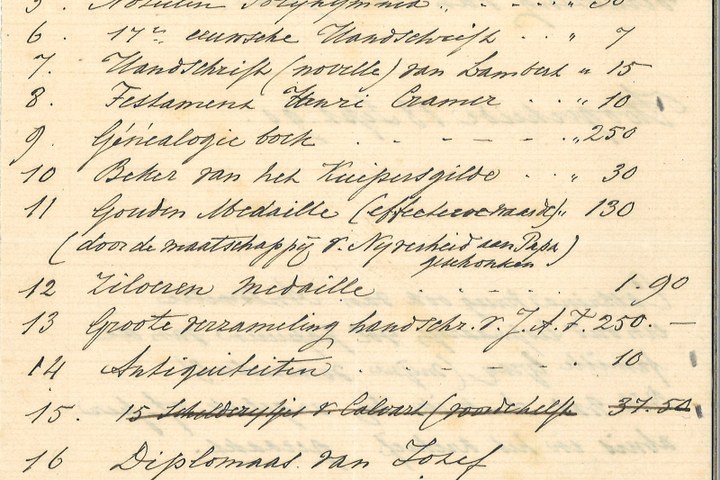 5. Notulen Polyhymnia . . . " 30
6. 17de eeuwsche Handschrift . . " 7
7. Handschrift (novelle) van Lambert " 15
8. Testament Henri Cramer . . " 10
9. Généalogie boek . - - - - . " 250
10 Beker van het Kuipersgilde . . " 30
11 Gouden Medaille (effectieve waarde) " 130
(door de maatschappij v. Nijverheid aan Papa
geschonken)
12 Zilveren medaille . - . - . - 1.90
13 Groote verzameling handschr. v. J. A. F. 250. —
14 Antiquiteiten . . - . - . - 10
15. 15 Schilderijtjes v. Calvart ( 37.50
16 Diplomaas van Jozef